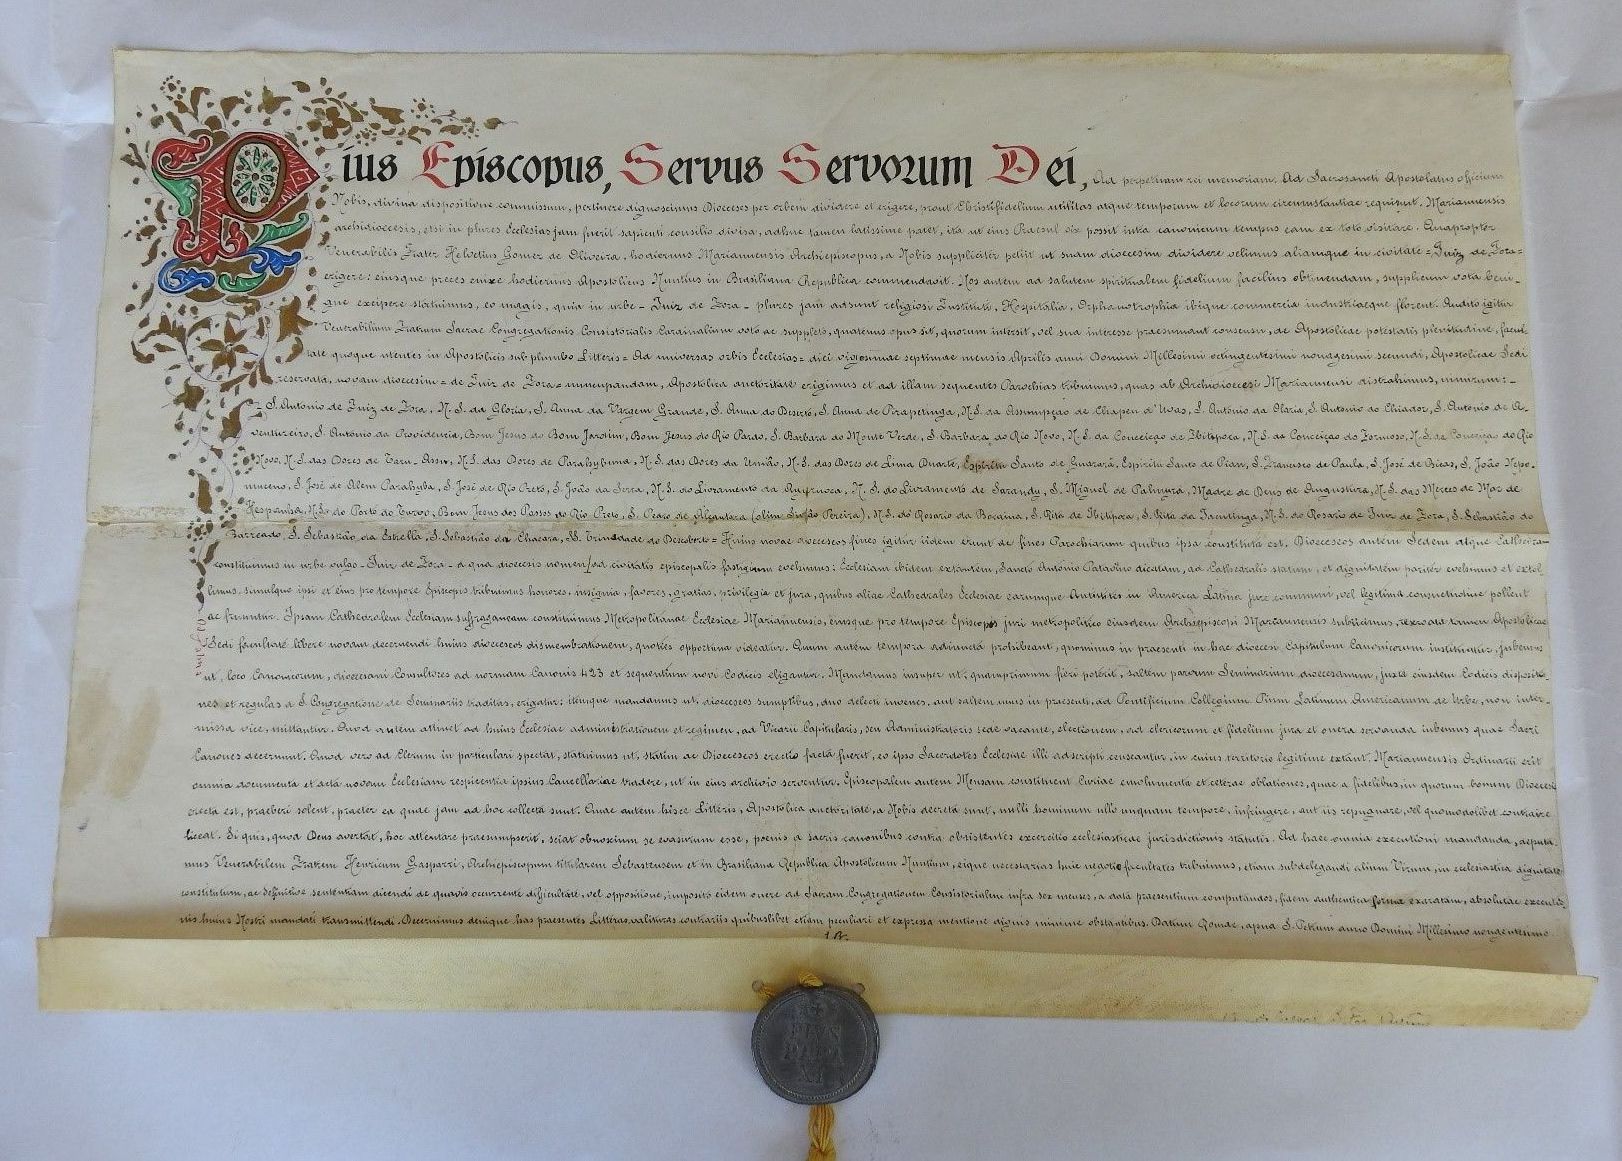 Pius Episcopus, Servus Servorum Dei, Ad perpetuam rei memoriam. Ad Sacrosancti Apostolatus officium
Nobis, divina dispositione commissum, pertinere dignoscimus Dioeceses per orbem dividere et erigere, prout Christifidelium utilitas atque temporum et locorum circumstantiae requirunt. Mariannensis
archidioecesis, etsi in plures Ecclesias jam fuerit sapienti consilio divisa, adhuc tamen latissime patet, ita ut eius Praesul vix possit intra canonicum tempus eam ex toto visitare. Quapropter
Venerabilis Frater Helvetius Gomez de Oliveira, hodiernus Mariannensis Archiepiscopus, a Nobis suppliciter petiit ut suam dioecesim dividere velimus aliamque in civitate = Juiz de Fora =
erigere: eiusque preces enixe hodiernus Apostolicus Nuntius in Brasiliana Republica commendavit. Nos autem ad salutem spiritualem fidelium facilius obtinendam, supplicum vota beni-
gne excipere statuimus, eo magis, quia in urbe - Juiz de Fora - plures jam adsunt religiosi Instituti, Hospitalia, Orphanotrophia ibique commercia industriaeque florent. Audito igitur
Venerabilium Fratrum Sacrae Congregationis Consistorialis Cardinalium voto ac suppleto, quatenus opus sit, quorum intersit, vel sua interesse praesumant consensu, de Apostolicae potestatis plenitudine, facul-
tate quoque utentes in Apostolicis sub plumbo Litteris = Ad universas orbis Ecclesias = diei vigesimae septimae mensis Aprilis anni Domini Millesimi octingentesimi nonagesimi secundi, Apostolicae Sedi
reservata, novam dioecesim = de Juiz de Fora = nuncupandam, Apostolica auctoritate erigimus et ad illam sequentes Parochias tribuimus, quas ab Archidioecesi Mariannensi distrahimus, nimirum: -
- S. Antonio de Juiz de Fora, N. S. da Gloria, S. Anna da Vargem Grande, S. Anna do Deserto, S. Anna de Pirapetinga, N. S. da Assumpção de Chapeu d'Uvas, S. António da Olaria, S. António do Chiador, S. Antonio de A-
ventureiro, S. António da Providencia, Bom Jesus do Bom Jardim, Bom Jesus do Rio Pardo, S. Barbara do Monte Verde, S. Barbara do Rio Novo, N. S. da Conceição de Ibitipoca, N. S. da Conceição do Formoso, N. S. da Conceição do Rio
Novo, N. S. das Dores de Taru-Assu, N. S. das Dores de Parahybuna, N. S. das Dores da União, N. S. das Dores de Lima Duarte, Espiritu Santo de Guarará, Espiritu Santo de Piau, S. Francisco de Paula, S. José de Bicas, S. João Nepo-
muceno, S. José de Alem Parahyba, S. José de Rio Preto, S. João da Serra, N. S. do Livramento da Ayuruoca, N. S. do Livramento de Sarandy, S. Miguel de Palmyra, Madre de Deus de Angustura, N. S. das Merces de Mar de
Hespanha, N. S. do Porto do Turvo, Bom Jesus dos Passos do Rio Preto, S. Pedro de Alcantara (olim Simão Pereira), N. S. do Rosario da Bocaina, S. Rita de Ibitipoca, S. Rita da Jacutinga, N. S. do Rosario de Juiz de Fora, S. Sebastião do
Barreado, S. Sebastião da Estrella, S. Sebastião da Chacara, SS. Trindade do Descoberto = Huius novae dioeceseos fines igitur iidem erunt ac fines Parochiarum quibus ipsa constituta est. Dioeceseos autem Sedem atque Cathedra-
constituimus in urbe vulgo - Juiz de Fora - a qua dioecesis nomen, ad civitatis episcopalis fastigium evehimus: Ecclesiam ibidem extantem, Sancto Antonio Patavino dicatam, ad Cathedralis statum, et dignitatem pariter evehimus et extol-
limus, simulque ipsi et eius pro tempore Episcopis tribuimus honores, insignia, favores, gratias, privilegia et jura, quibus aliae Cathedrales Ecclesiae earumque Antistites in America Latina jure communi, vel legitima consuetudine pollent
ac fruuntur. Ipsam Cathedralem Ecclesiam suffraganeam constituimus Metropolitanae Ecclesiae Mariannensis, eiusque pro tempore Episcopos juri metropolitico eiusdem Archiepiscopi Mariannensis subiicimus, reservata tamen Apostolicae
Sedi facultate libere novam decernendi huius dioeceseos dismembrationem, quoties opportuna videatur. Quum autem tempora adiuncta prohibeant, quominus in praesenti in hac dioecesi Capitulum Canonicorum instituatur, jubemus
ut, loco Canonicorum, dioecesani Consultores ad normam Canonis 423 et sequentium novi Codicis eligantur. Mandamus insuper ut, quamprimum fieri poterit, saltem parvum Seminarium dioecesanum, juxta eiusdem Codicis dispositio-
nes et regulas a S. Congregatione de Seminariis traditas, erigatur: itemque mandamus ut, dioeceseos sumptibus, duo delecti juvenes, aut saltem unus in praesenti, ad Pontificium Collegium Pium Latinum Americanum de Urbe, non inter-
missa vice, mittantur. Quod autem attinet ad huius Ecclesiae administrationem et regimen, ad Vicarii Capitularis, seu Administratoris sede vacante, electionem, ad clericorum et fidelium jura et onera servanda iubemus quae Sacri
Canones decernunt. Quod vero ad Clerum in particulari spectat, statuimus ut, statim ac Dioeceseos erectio facta fuerit, eo ipso Sacerdotes Ecclesiae illi adscripti censeantur, in cuius territorio legitime extant. Mariannensis Ordinarii erit
omnia documenta et acta novam Ecclesiam respicientia ipsius Cancellariae tradere, ut in eius archivio serventur. Episcopalem autem Mensam constituent Curiae emolumenta et ceterae oblationes, quae a fidelibus, in quorum bonum Dioecesis
erecta est, praeberi solent, praeter ea quae jam ad hoc collecta sunt. Quae autem hisce Litteris, Apostolica auctoritate, a Nobis decreta sunt, nulli hominum ullo unquam tempore, infringere, aut iis repugnare, vel quomodolibet contraire
liceat. Si quis, quod Deus avertat, hoc attentare praesumpserit, sciat obnoxium se evasurum esse, poenis a sacris canonibus contra obsistentes exercitio ecclesiasticae jurisdictionis statutis. Ad haec omnia executioni mandanda, deputa-
mus Venerabilem Fratrem Henricum Gasparri, Archiepiscopum titularem Sebastensem et in Brasiliana Republica Apostolicum Nuntium, eique necessarias huic negotio facultates tribuimus, etiam subdelegandi alium Virum, in ecclesiastica dignitate
constitutum, ac definitive sententiam dicendi de quavis occurrente difficultate, vel oppositione, imposito eidem onere ad Sacram Congregationem Consistorialem infra sex menses, a data praesentium computandos, fidem authentica forma exaratam, absolutae executio-
nis huius Nostri mandati transmittendi. Decernimus denique has praesentes Litteras valituras contrariis quibuslibet etiam peculiari et expressa mentione dignis minime obstantibus. Datum Romae, apud S. Petrum anno Domini Millesimo nongentesimo
PIUS
PAPA
XI